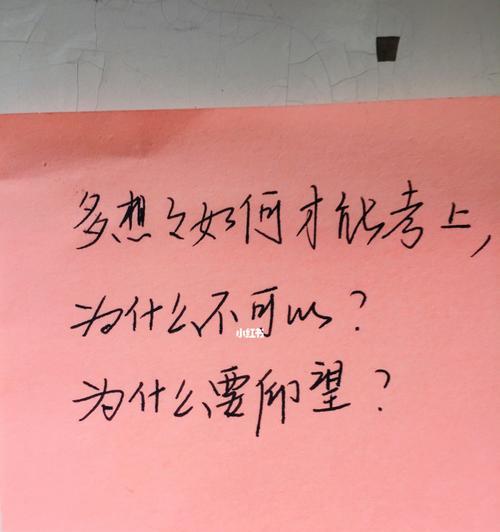 多想々如何才能考上，
为什么不可以？
小红书
为什么要仰望？